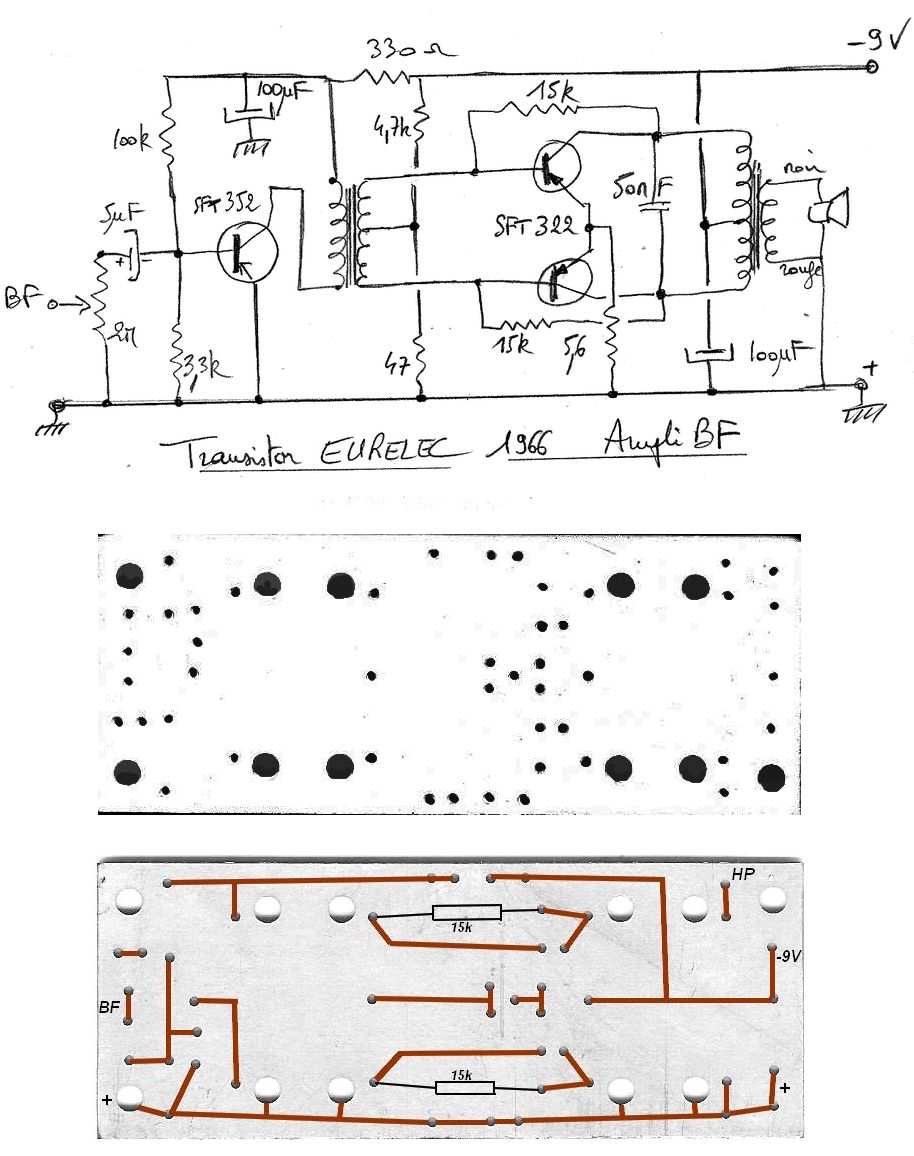 330 Ω
-9V
100µF
15k
100k
4,7k
noir
SFT 352
50nF
5µF
SFT 322
+ -
BF
rouge
15k
5,6
3,3k
47
100µF
+
Transistor EURELEC 1966 Ampli BF
HP
15k
-9V
BF
15k
+
+